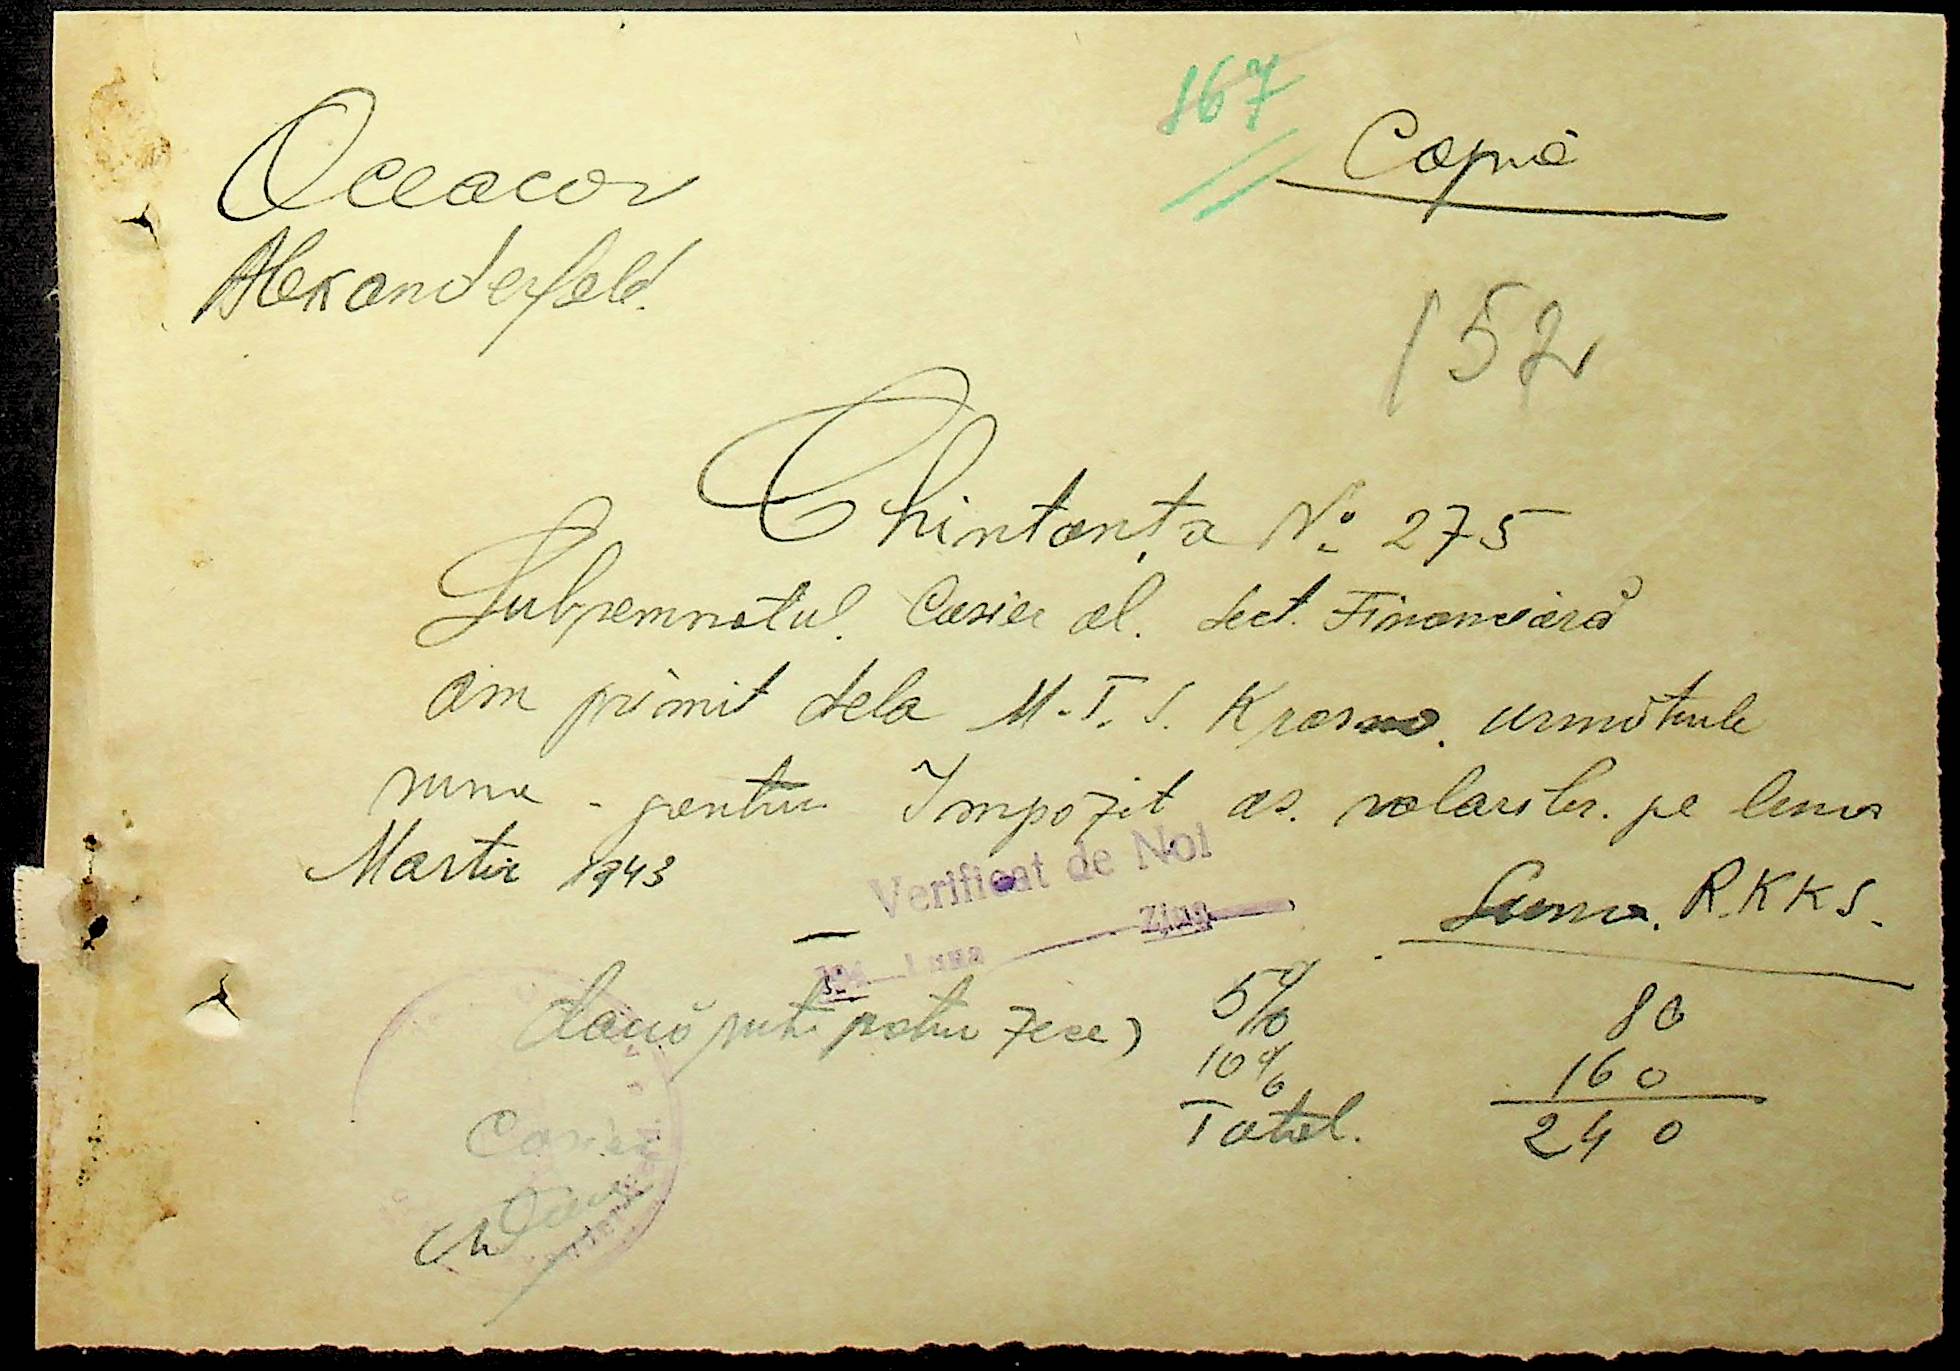 167
Copie
Oceacov
Alexanderfeld.
152
Chintanța No 275
Subsemnatul. Casier al. sect. Financiară
am primit dela M.T.S. Krasno. urmatoarele
suma - pentru Impozit as. salariilor. pe luna
Martie 1943
Verificat de Noi
Luna Ziua
Suma. R.K.K.S.
două sute patru zece) 5% 80
10% 160
Total. 240
Casier